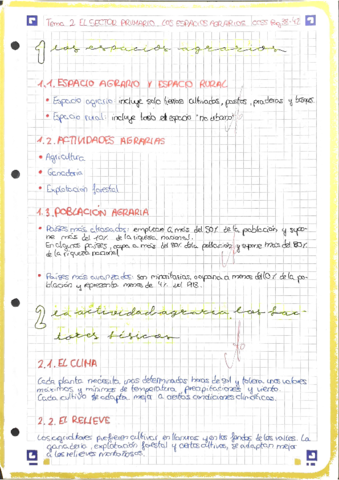 Tema 2 EL SECTOR PRIMARIO. LOS ESPACIOS AGRARIOS
1 los espacios agrarios
1.1. ESPACIO AGRARIO Y ESPACIO RURAL
• Espacio agrario: incluye solo tierras cultivadas, pastos, praderas y bosques.
• Espacio rural: incluye todo el espacio "no urbano"
1.2. ACTIVIDADES AGRARIAS
• Agricultura
• Ganadería
• Explotación forestal
1.3. POBLACIÓN AGRARIA
• Países más atrasados: emplean a más del 50% de la población y supo-
ne más del 10% de la riqueza nacional.
En algunos países, ocupa a más del 80% de la población y supone más del 80%
de la riqueza nacional
• Países más avanzados: son minoritarias, ocupan a menos del 10% de la po-
blación y representa menos de 4% del PIB.
2 la actividad agraria los fac-
tores físicos
2.1. EL CLIMA
Cada planta necesita unas determinadas horas de sol y tolera unos valores
máximos y mínimos de temperatura, precipitaciones y viento.
Cada cultivo se adapta mejor a ciertas condiciones climáticas.
2.2. EL RELIEVE
Los agricultores prefieren cultivar en llanuras y en los fondos de los valles. La
ganadería, explotación forestal y ciertos cultivos, se adaptan mejor
a los relieves montañosos.